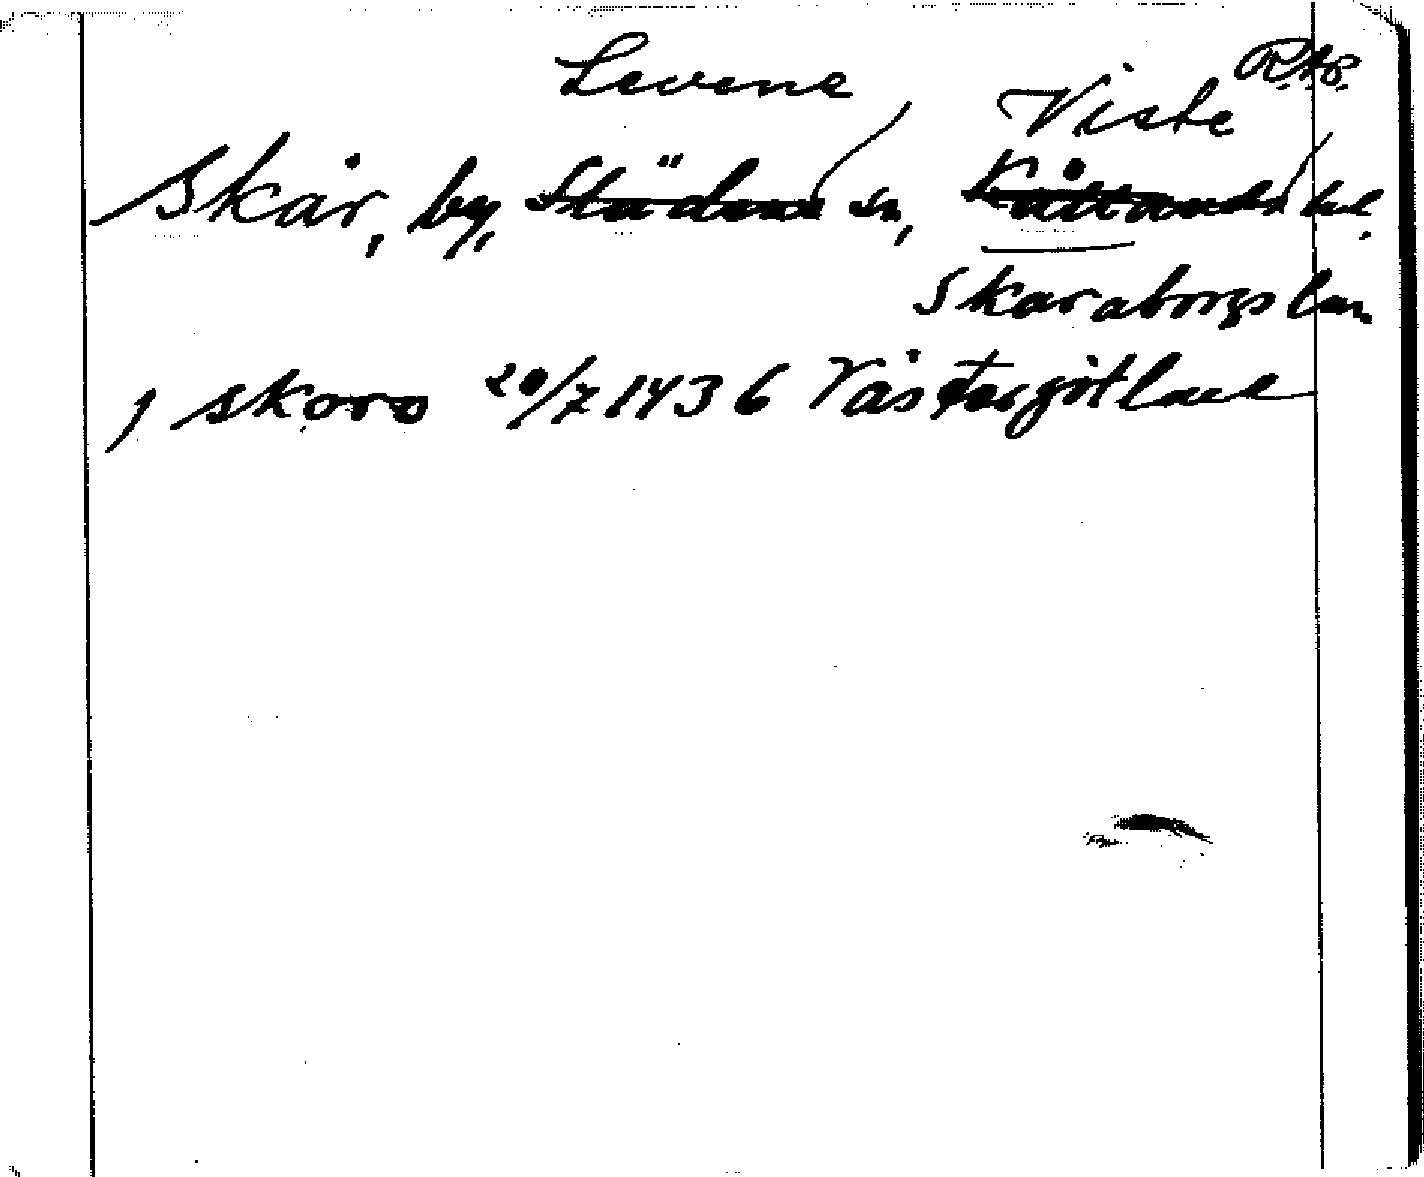 Levene Viste R.A.P.
Skår, by, Slädene sn, Kållands hd.
Skaraborgs län
j skoro 20/7 1436 Västergötland